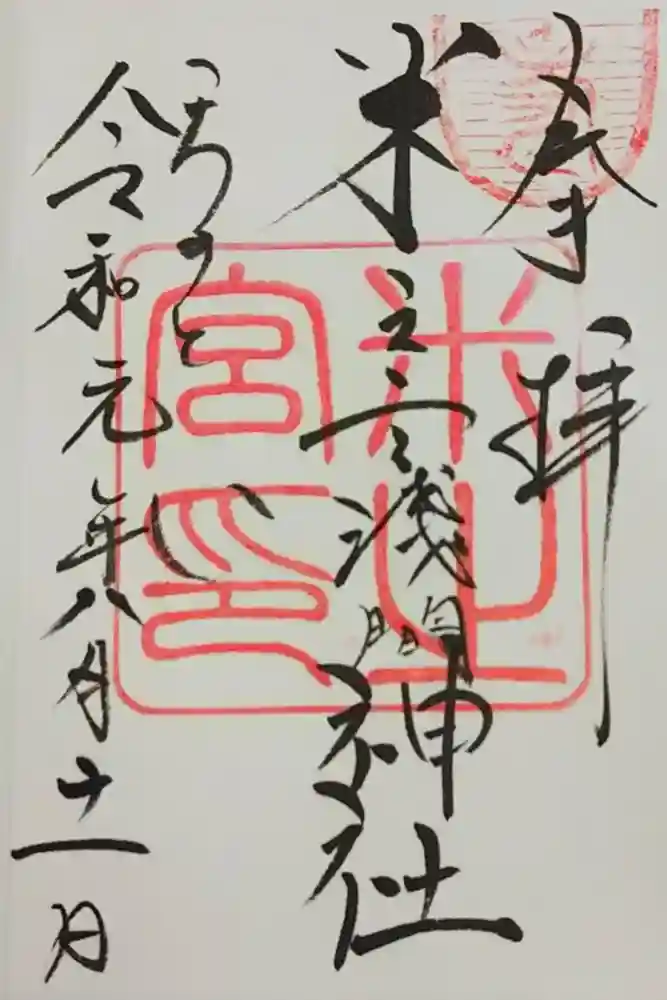 奉拝
米之宮浅間神社
つちのとい
令和元年八月十一日
米之
宮印